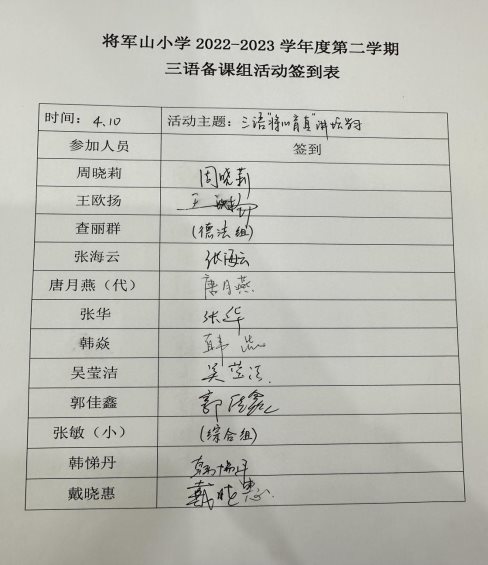 将军山小学2022-2023学年度第二学期
三语备课组活动签到表
时间：4.10 活动主题：三语"将心育真"讲坛学习
参加人员 签到
周晓莉 周晓莉
王欧扬 王欧扬
查丽群 (德法组)
张海云 张海云
唐月燕（代） 唐月燕
张华 张华
韩焱 韩焱
吴莹洁 吴莹洁
郭佳鑫 郭佳鑫
张敏（小） (综合组)
韩悌丹 韩悌丹
戴晓惠 戴晓惠